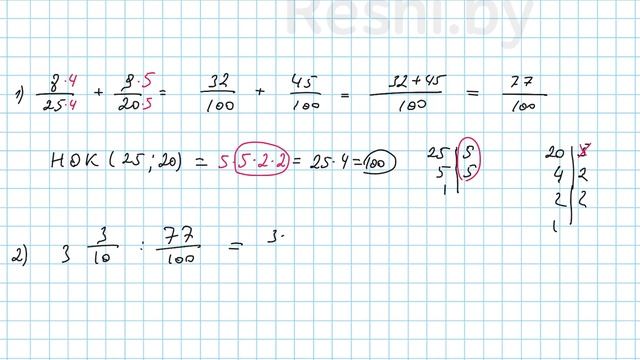 Reshi.by
1) 8·4/25·4 + 9·5/20·5 = 32/100 + 45/100 = 32+45/100 = 77/100
НОК (25; 20) = 5·5·2·2 = 25·4 = 100
25 | 5
5 | 5
1
20 | 5
4 | 2
2 | 2
1
2) 3 3/10 : 77/100 = 3·